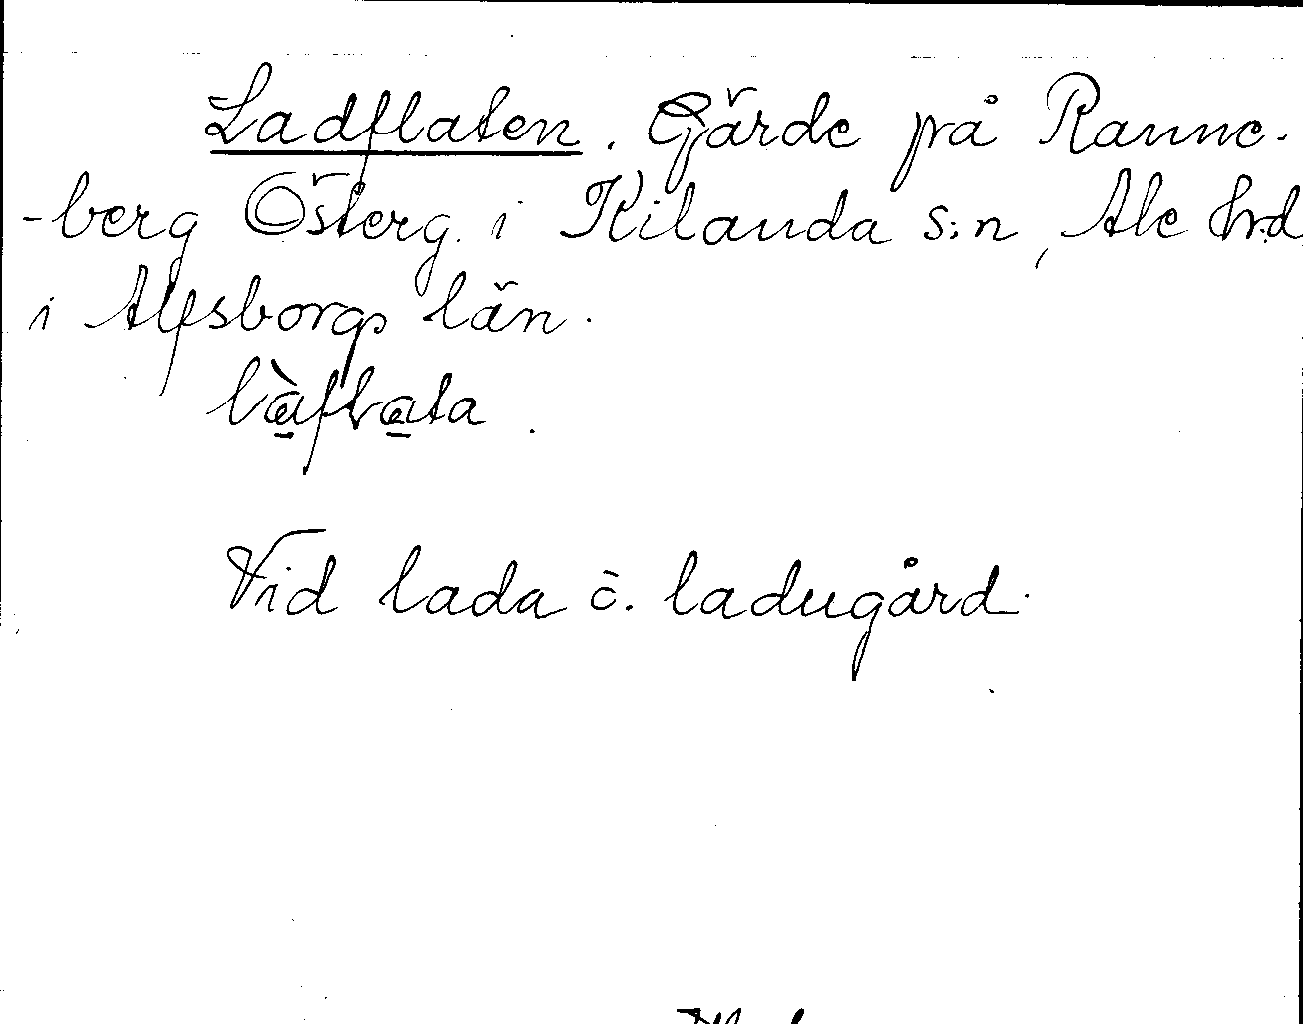 Ladflaten. Gärde på Ranne-
-berg Österg. i Kilanda s:n, Ale hrd
i Älfsborgs län.
là̱fla̱ta.
Vid lada l. ladugård.